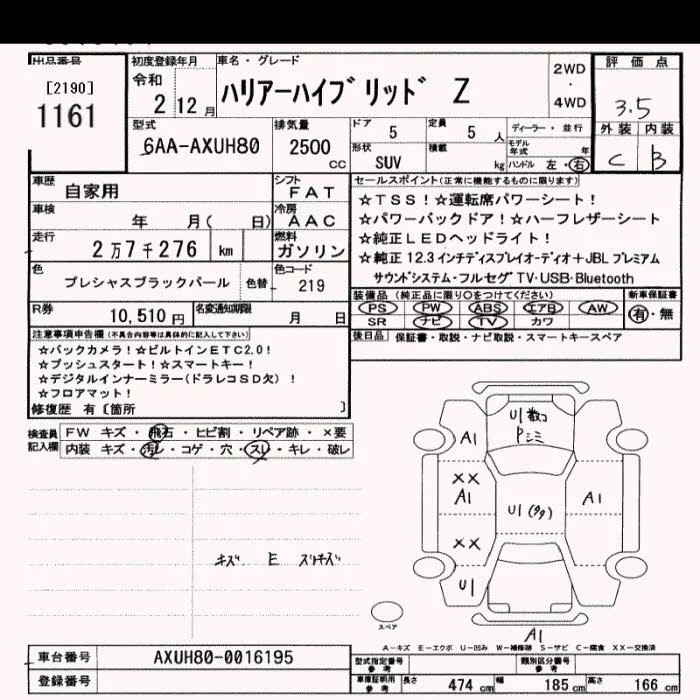 出品番号
[2190]
1161
初度登録年月
令和
2 12 月
車名・グレード
ハリアーハイブリッド Z
2WD
・
4WD
評価点
3.5
外装 内装
C B
型式
6AA-AXUH80
排気量
2500
cc
ドア 5
定員 5 人
ディーラー・並行
形状
SUV
積載
kg
モデル年式 年
ハンドル 左・右
車歴
自家用
シフト
FAT
車検
年 月( 日)
冷房
AAC
走行
2万7千276 km
燃料
ガソリン
色
プレシャスブラックパール
色替
色コード
219
R券
10,510 円
名変通知期限
月 日
セールスポイント(正常に機能するものに限ります)
☆TSS!☆運転席パワーシート!
☆パワーバックドア!☆ハーフレザーシート
☆純正LEDヘッドライト!
☆純正12.3インチディスプレイオーディオ+JBLプレミアム
サウンドシステム・フルセグTV・USB・Bluetooth
装備品(純正品に限り○をつけてください)
PS PW ABS エアB AW
SR ナビ TV カワ
新車保証書
有・無
後日品 保証書・取説・ナビ取説・スマートキースペア
注意事項申告欄(不具合内容等は具体的に記入して下さい)
☆バックカメラ!☆ビルトインETC2.0!
☆プッシュスタート!☆スマートキー!
☆デジタルインナーミラー(ドラレコSD欠)!
☆フロアマット!
修復歴 有〔箇所 〕
検査員記入欄
FW キズ・飛石・ヒビ割・リペア跡・×要
内装 キズ・汚レ・コゲ・穴・スレ・キレ・破レ
キズ E スリキズ
A1
U1
Pミミ
XX
A1
XX
U1
U1
A1
A1
スペア
A-キズ E-エクボ U-凹み W-補修跡 S-サビ C-腐食 XX-交換済
車台番号 AXUH80-0016195
登録番号
型式指定番号 参考
類別区分番号 参考
車庫証明用 参考
長さ 474 cm 幅 185 cm 高さ 166 cm